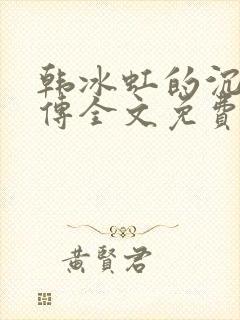 韩冰虹的沉
傅全文免費
黃賢君